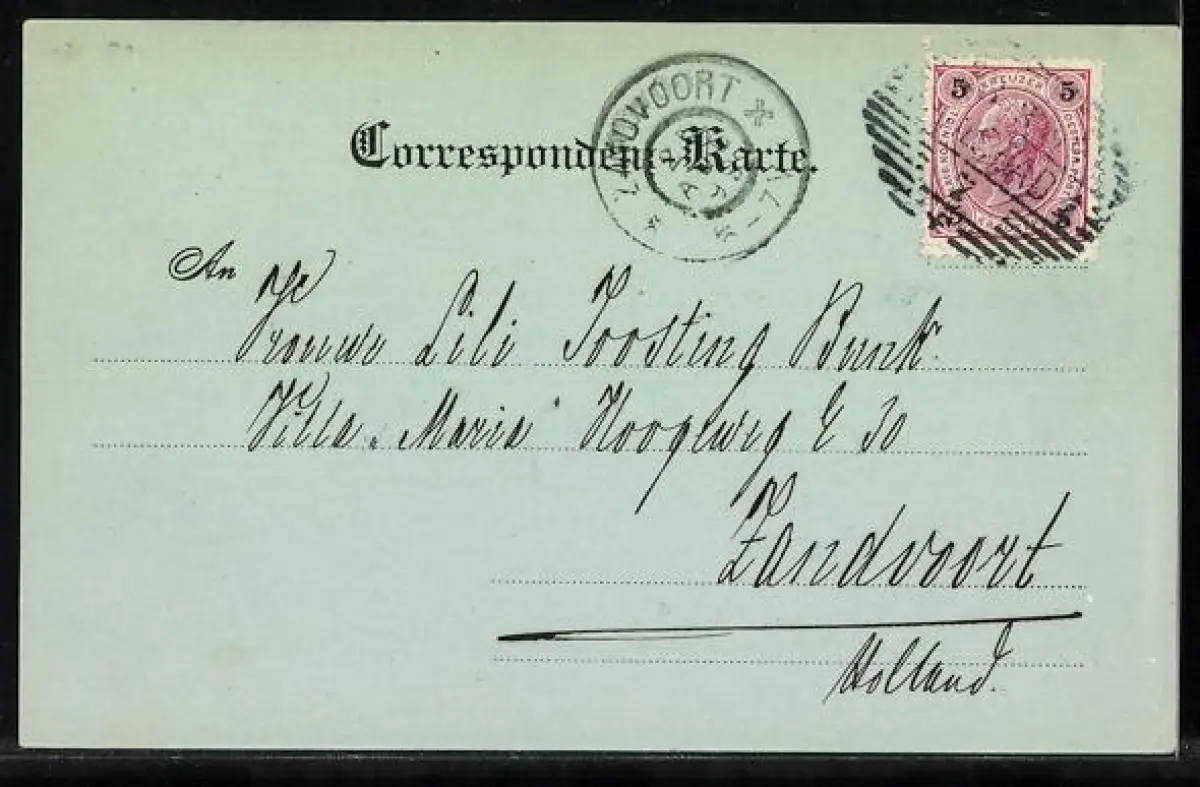 Correspondenz-Karte.
ZANDVOORT
5 KREUZER 5
An
Vrouwe Lili Joosting Bunk
Villa „Maria" Hoogeweg E 30
Zandvoort
Holland.